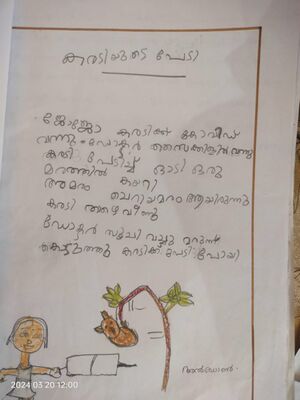 കരടിയുടെ പേടി
ജോജോ കരടിക്ക് കോവീഡ്
വന്നു. ഡോക്ടർ
കരടി പേടിച്ച് ഓടി ഒരു
മരത്തിൽ കയറി
ചെറിയമരം ആയിരുന്നു
കരടി താഴെ വീണു
ഡോക്ടർ സൂചി വച്ചു മറുന്ന്
കൊടുത്തു കരടിക്ക് പേടി പോയി
2024:03:20 12:00